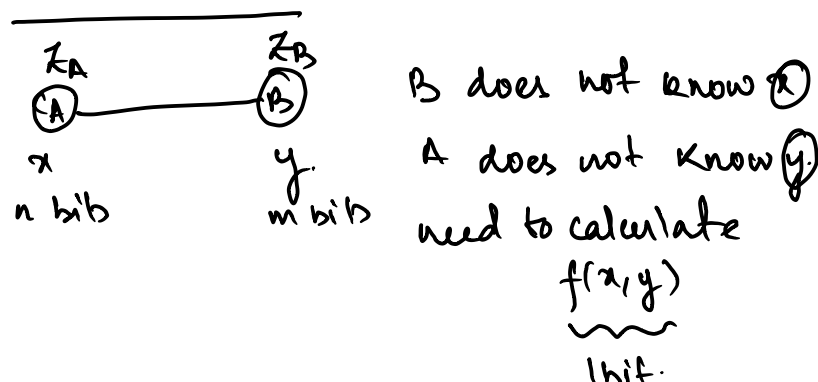 Z_A Z_B
A B
x y.
n bits m bits
B does not know x
A does not know y.
need to calculate
f(x, y)
1 bit.